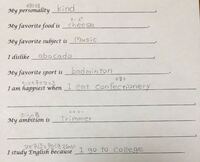 My personality kind.
My favorite food is cheese.
My favorite subject is Music.
I dislike abocado.
My favorite sport is badminton.
I am happiest when I eat confectionery.
My ambition is Trimmer.
I study English because I go to college.